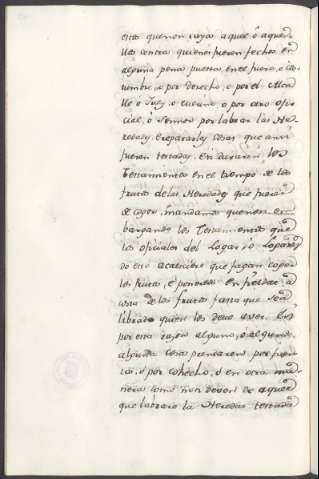 estos que non cayos aquel ó aque
llos contra quienes fueren fechos en
alguna pena puesta en el fuero, o cos
tumbre, o por derecho, o por el Alca
lle ó Juez, o cucuno, o por otro ofi
cial, ó Sennor por labrar las He
redades, e repararlas, e cosas que ansi
fueren testadas, e si duraren los
Testamientos en el tiempo de los
frutos de las Heredades que fueren
de coger, mandamos que non em
bargando los Testamientos que
los oficiales del Logar do
esto acaesciere que fagan coger
los frutos, é ponerlos en fieldat á
costa de los frutos fasta que sea
librado quien los deve aver. E si
por esta razon alguno, ó algunos
alguna cosa prenaren por fuer
za, ó por cohecho, ó en otra ma
nera como non deven de aquel
que labrare la Heredat testada